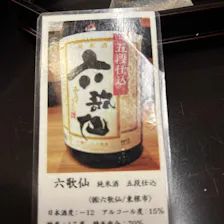 純米酒
五段仕込
六歌仙
六歌仙 純米酒 五段仕込
(㈱六歌仙/東根市)
日本酒度:-12 アルコール度:15%